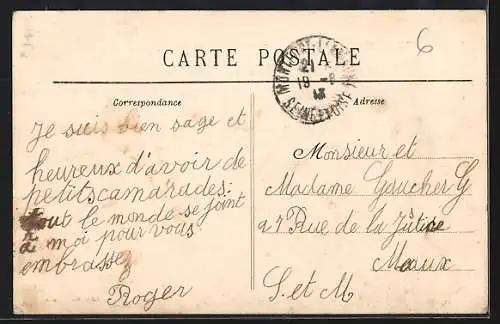 CARTE POSTALE
6
21
19 - 8
13
SEINE-ET-OISE
Correspondance
Adresse
Je suis bien sage et
heureux d'avoir de
petits camarades.
tout le monde se joint
à moi pour vous
embrassez
Roger
Monsieur et
Madame Gaucher G
27 Rue de la Jútice
Meaux
S. et M